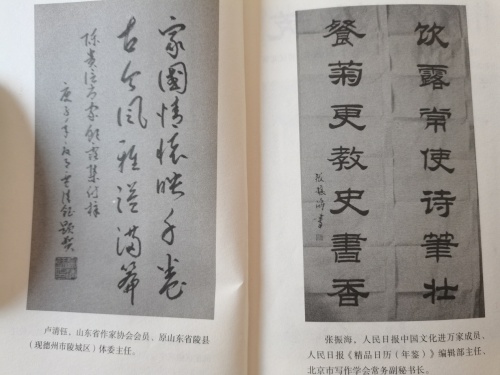 家國情懷映千卷
古今风雅溢满
陈贵信方家饮露集付梓
庚子年 卢清钰题贺
卢清钰，山东省作家协会会员、原山东省陵县
（现德州市陵城区）体委主任。
饮露常使诗筆壮
餐菊更教史書香
张振海書
张振海，人民日报中国文化进万家成员、
人民日报《精品日历（年鉴）》编辑部主任、
北京市写作学会常务副秘书长。